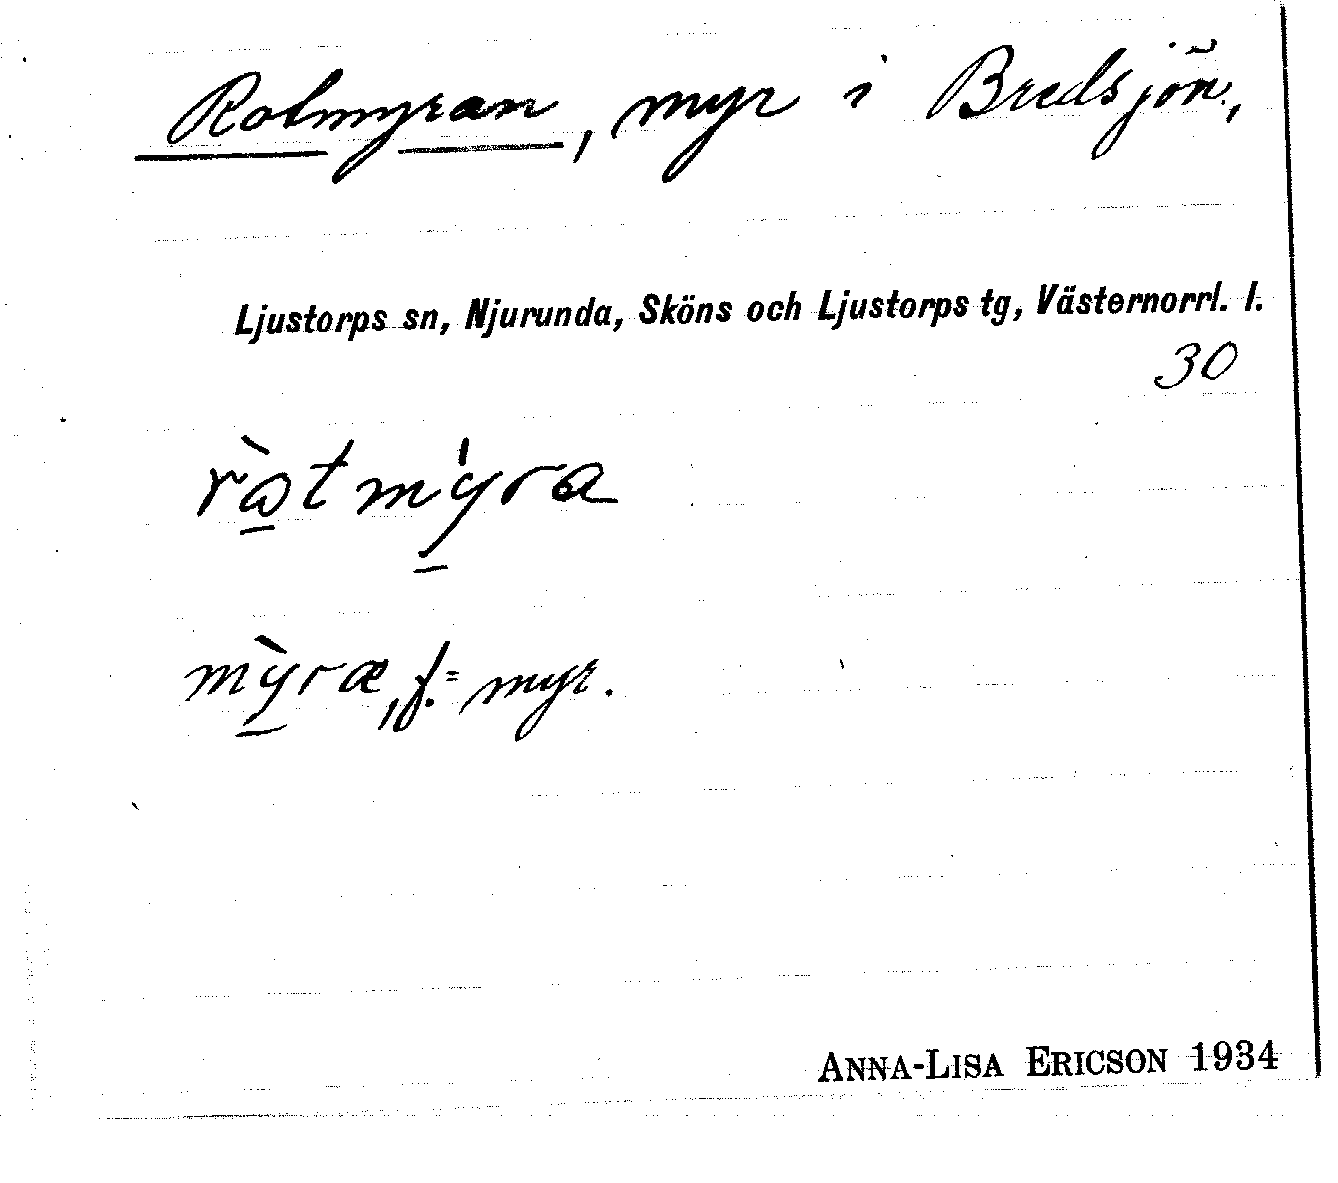 Rotmyran, myr i Bredsjön,
Ljustorps sn, Njurunda, Sköns och Ljustorps tg, Västernorrl. l.
30
rὼ̲tmy̲̍ra
mỳ̲ræ, f. = myr.
ANNA-LISA ERICSON 1934